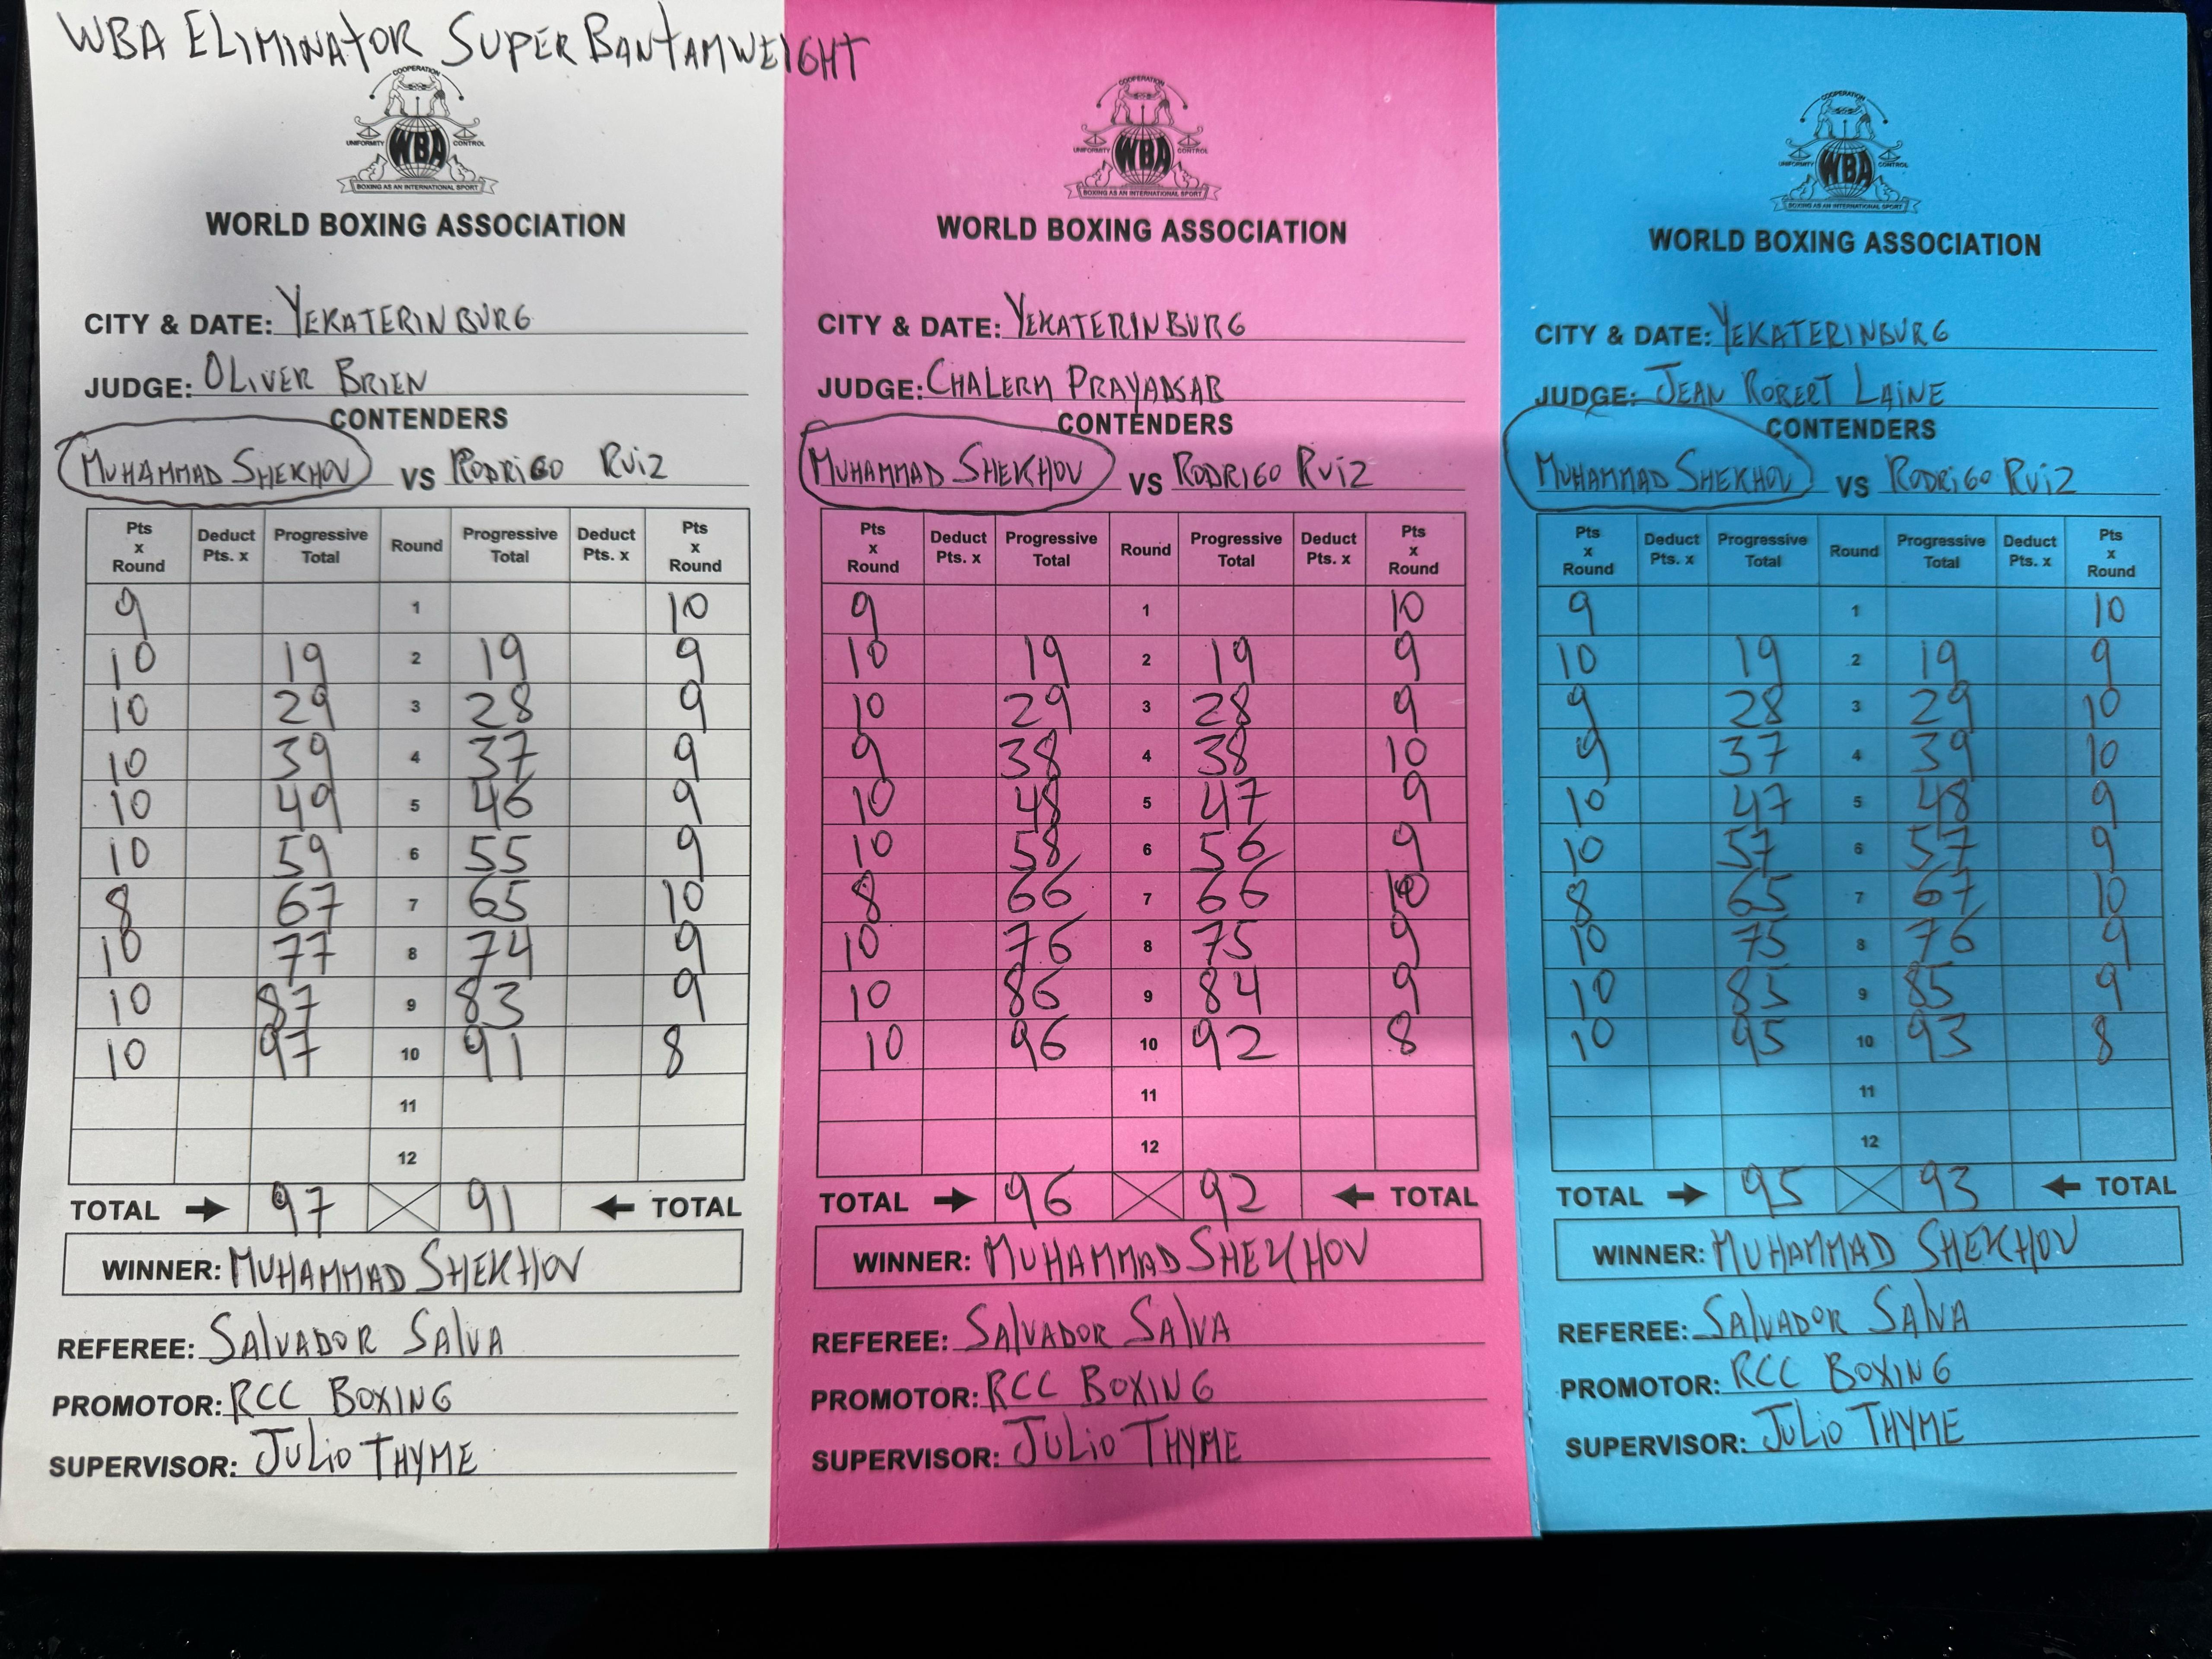 WBA ELIMINATOR SUPER BANTAMWEIGHT
COOPERATION
UNIFORMITY WBA CONTROL
BOXING AS AN INTERNATIONAL SPORT
WORLD BOXING ASSOCIATION
CITY & DATE: YEKATERINBURG
JUDGE: OLIVER BRIEN
CONTENDERS
MUHAMMAD SHEKHOV VS RODRIGO RUIZ
Pts x Round Deduct Pts. x Progressive Total Round Progressive Total Deduct Pts. x Pts x Round
9 1 10
10 19 2 19 9
10 29 3 28 9
10 39 4 37 9
10 49 5 46 9
10 59 6 55 9
8 67 7 65 10
10 77 8 74 9
10 87 9 83 9
10 97 10 91 8
11
12
TOTAL 97 91 TOTAL
WINNER: MUHAMMAD SHEKHOV
REFEREE: SALVADOR SALVA
PROMOTOR: RCC BOXING
SUPERVISOR: JULIO THYME
COOPERATION
UNIFORMITY WBA CONTROL
BOXING AS AN INTERNATIONAL SPORT
WORLD BOXING ASSOCIATION
CITY & DATE: YEKATERINBURG
JUDGE: CHALERM PRAYADSAB
CONTENDERS
MUHAMMAD SHEKHOV VS RODRIGO RUIZ
Pts x Round Deduct Pts. x Progressive Total Round Progressive Total Deduct Pts. x Pts x Round
9 1 10
10 19 2 19 9
10 29 3 28 9
9 38 4 38 10
10 48 5 47 9
10 58 6 56 9
8 66 7 66 10
10 76 8 75 9
10 86 9 84 9
10 96 10 92 8
11
12
TOTAL 96 92 TOTAL
WINNER: MUHAMMAD SHEKHOV
REFEREE: SALVADOR SALVA
PROMOTOR: RCC BOXING
SUPERVISOR: JULIO THYME
COOPERATION
UNIFORMITY WBA CONTROL
BOXING AS AN INTERNATIONAL SPORT
WORLD BOXING ASSOCIATION
CITY & DATE: YEKATERINBURG
JUDGE: JEAN ROBERT LAINE
CONTENDERS
MUHAMMAD SHEKHOV VS RODRIGO RUIZ
Pts x Round Deduct Pts. x Progressive Total Round Progressive Total Deduct Pts. x Pts x Round
9 1 10
10 19 2 19 9
9 28 3 29 10
9 37 4 39 10
10 47 5 48 9
10 57 6 57 9
8 65 7 67 10
10 75 8 76 9
10 85 9 85 9
10 95 10 93 8
11
12
TOTAL 95 93 TOTAL
WINNER: MUHAMMAD SHEKHOV
REFEREE: SALVADOR SALVA
PROMOTOR: RCC BOXING
SUPERVISOR: JULIO THYME